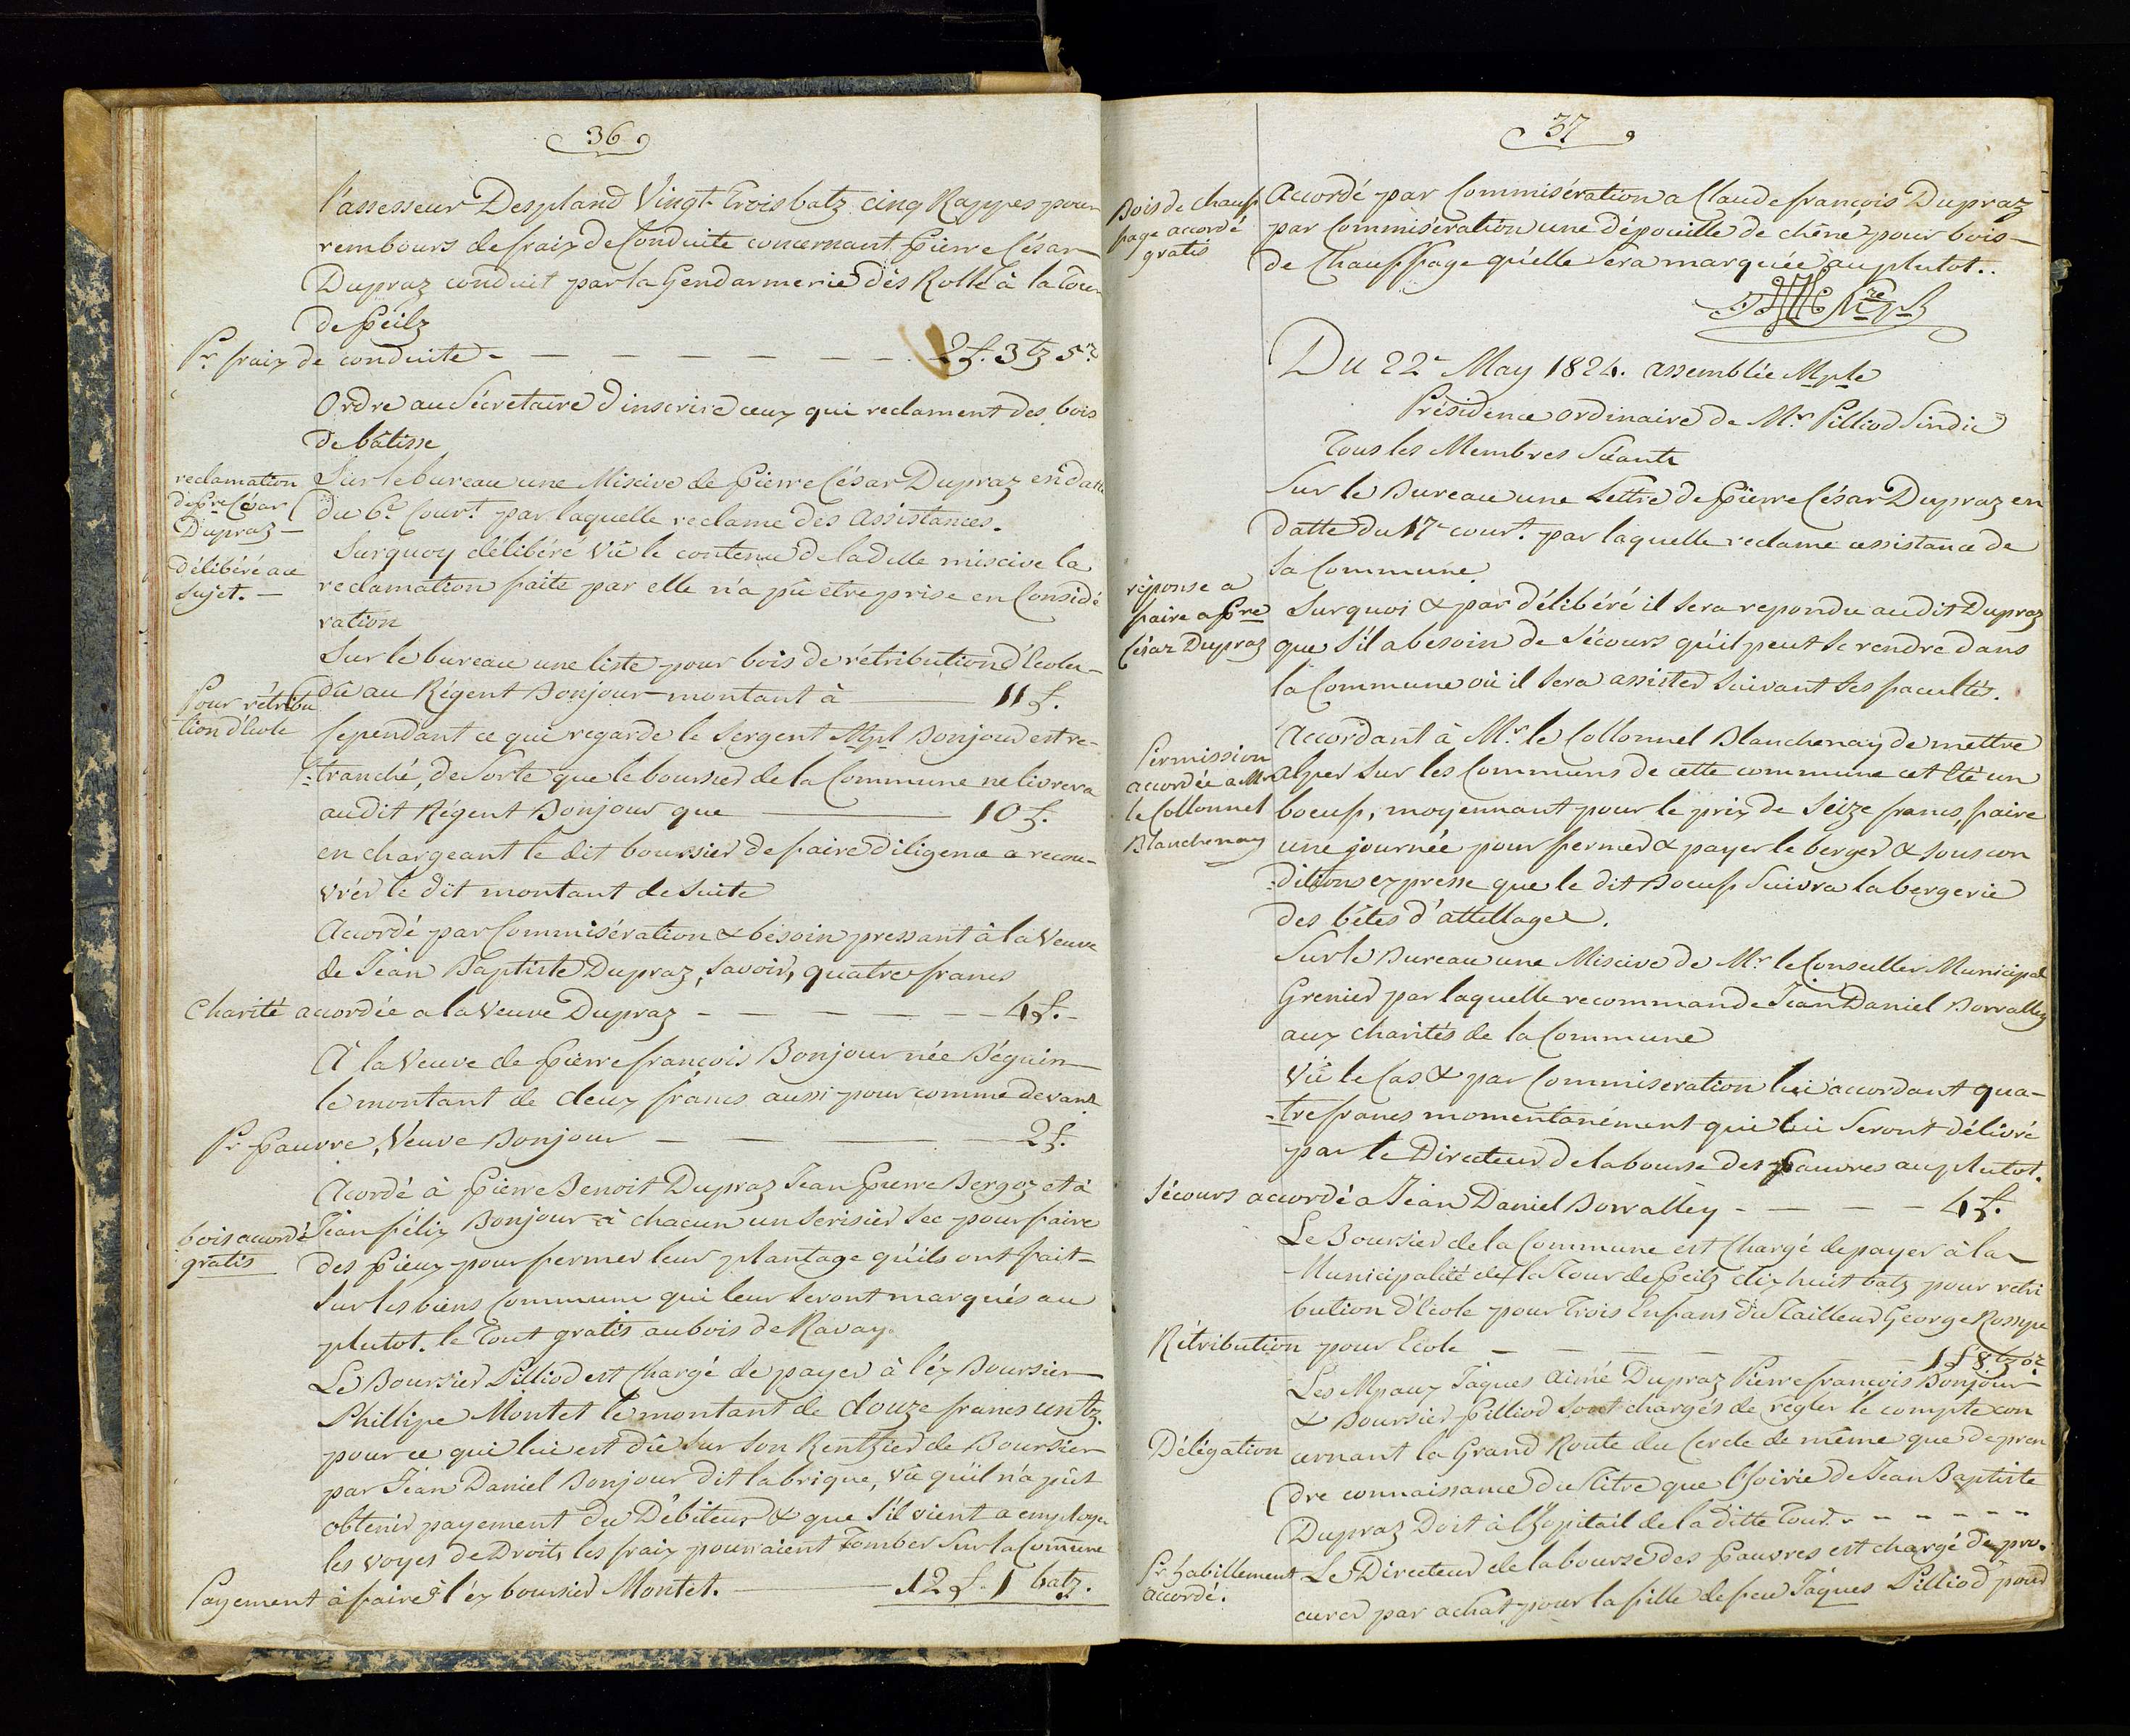 36
l'assesseur Despland Vingt-Trois batz cinq Rappes pour
rembours de fraix de Conduite concernant Pierre César
Dupraz conduit par la Gendarmerie dès Rolle à la Tour
de Peilz
Pr. fraix de conduite - 2 f. 3 tz 5 r.
Ordre au Sécretaire d'inscrire ceux qui reclament des bois
de bâtisse
reclamation
de Pre César
Dupraz
Sur le bureau une Miscive de Pierre César Dupraz en datte
du 6e Court. par laquelle reclame des Assistances.
délibéré au
sujet.
Surquoy délibéré Vû le contenu de la dite miscive la
reclamation faite par elle n'a pû etre prise en Considé
ration
Sur le bureau une liste pour bois de rétribution d'Ecole
Pour rétribu
tion d'école
dû au Régent Bonjour montant à 11 f.
Cependant ce qui regarde le Sergent Mpl Bonjour est re-
tranché, de Sorte que le boursier de la Commune ne livrera
audit Régent Bonjour que 10 f.
en chargeant le dit boursier de faire diligence a recou-
vrér le dit montant de Suite
Accordé par Commisération & bésoin pressant à la Veuve
de Jean Baptiste Dupraz, Savoir, quatre francs
Charité accordée a la Veuve Dupraz - 4 f.
A la Veuve de Pierre françois Bonjour née Béguin
le montant de deux francs aussi pour comme devant
Pr. Pauvre, Veuve Bonjour 2 f.
Acordé à Pierre Benoit Dupraz Jean Pierre Bergoz et à
bois accordé
gratis
Jean félix Bonjour à chacun un Serisier Sec pour faire
des Pieux pour fermer leur plantage qu'ils ont fait
Sur les biens Commune qui leur Seront marqués au
plutot. le Tout gratis au bois de Ravay.
Le Boursier Pilliod est Chargé de payer à l'éx Boursier
Phillipe Montet le montant de douze francs un tz.
pour ce qui lui est dû Sur Son Rentzier de Boursier
par Jean Daniel Bonjour dit labrique, Vû qu'il n'a pût
obtenir payement du Débiteur & que S'il vient a employer
les voyes de Droit, les fraix pourraient Tomber Sur la Comune
Payement à faire à l'éx boursier Montet. 12 f. 1 batz.
37
Bois de chauf
fage accordé
gratis
Accordé par Commisération a Claude françois Dupraz
par Commisération une dépouille de chêne, pour bois
de Chauffage qu'elle Sera marquée au plutot..
Du 22e May 1824. assemblée Mple
Présidence ordinaire de Mr. Pilliod Sindic
Tous les Membres Séants
Sur le Bureau une Lettre de Pierre César Dupraz en
datte du 17e court. par laquelle reclame assistance de
Sa Commune.
réponse a
faire a Pre
César Dupraz
Surquoi & par délibéré il Sera repondu audit Dupraz
que S'il a besoin de Sécours qu'il peut Se rendre dans
la Commune où il Sera assister Suivant Ses facultés.
Permission
accordée a Mr
le Collonnel
Blanchenay
Accordant à Mr. le Collonnel Blanchenay de mettre
alper Sur les Communs de cette commune cet Eté un
boeuf, moyennant pour le prix de Seize francs, faire
une journée pour fermer & payer le berger & Sous con
ditions expresse que le dit Boeuf Suivra la bergerie
des bêtes d'attellage.
Sur le Bureau une Miscive de Mr. le Conseiller Municipal
Grenier par laquelle recommande Jean Daniel Borralley
aux charités de la Commune
Vû le Cas & par Commiseration lui accordant qua-
tre francs momentanément qui lui Seront délivré
par le Directeur de la bourse des Pauvres au plutot.
Sécours accordé a Jean Daniel Borralley - 4 f.
Le Boursier de la Commune est Chargé de payer à la
Municipalité de la Tour de Peilz dix huit batz pour rétri
bution d'école pour Trois Enfans du Tailleur George Rossype
Rétribution pour Ecole - 1 f 8 tz 0 r.
Les Mpaux Jaques Aimé Dupraz Pierre françois Bonjour
& Boursier Pilliod Sont chargés de régler le compte con
Délégation
cernant la Grand Route du Cercle de même que de pren
dre connaissance du Titre que l'hoirie de Jean Baptiste
Dupraz Doit à l'hopitail de la ditte Tour. - - - - -
Pr. habillement
accordé.
Le Directeur de la bourse des Pauvres est chargé de pro.
curer par achat pour la fille de feu Jâques Pilliod pour